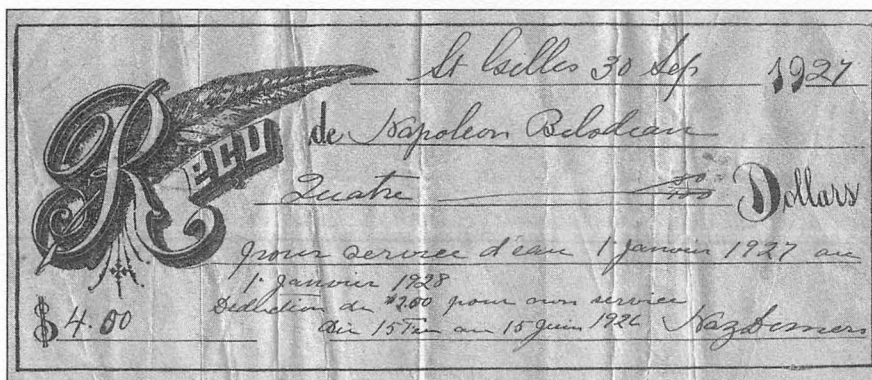 St Gilles 30 Sep 1927
REÇU de Napoleon Bilodeau
Quatre 00/100 Dollars
pour service d'eau 1 janvier 1927 au
1. janvier 1928
Deduction de $2.00 pour non service
15 au 15 Juin 1926 Naz Demers
$4.00